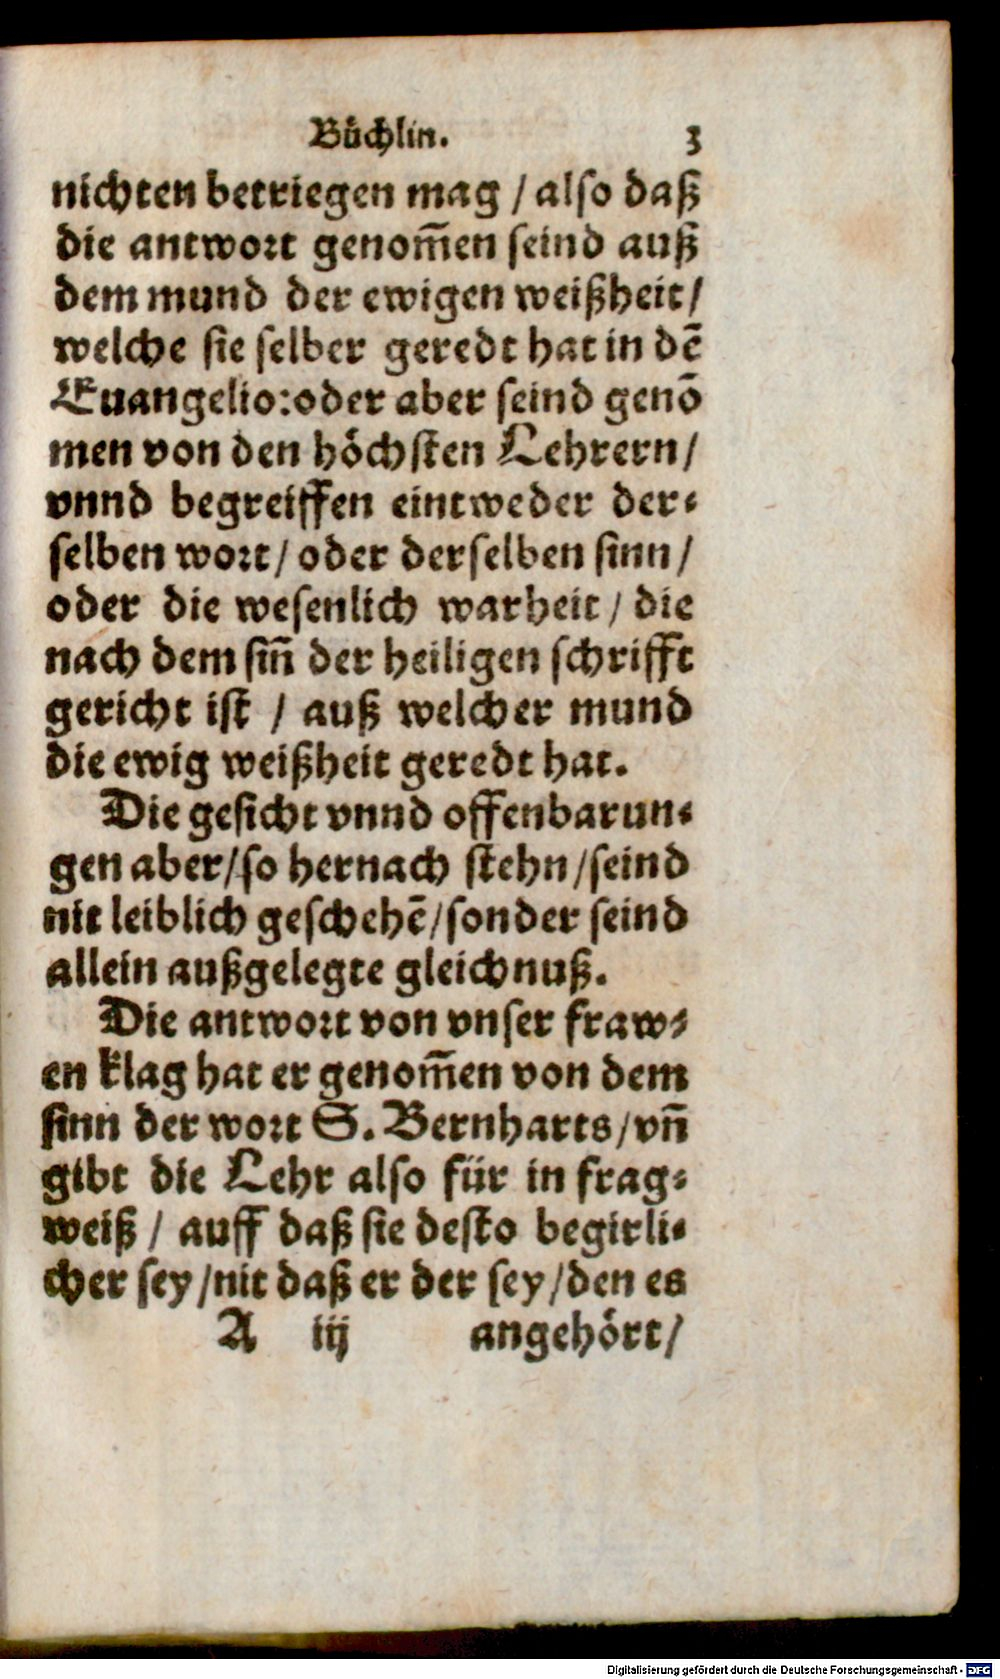 Buͤchlin. 3
nichten betriegen mag / also daß
die antwort genom̃en seind auß
dem mund der ewigen weißheit /
welche sie selber geredt hat in dẽ
Euangelio: oder aber seind genõ
men von den hoͤchsten Lehrern /
vnnd begreiffen eintweder der⸗
selben wort / oder derselben sinn /
oder die wesenlich warheit / die
nach dem sin̄ der heiligen schrifft
gericht ist / auß welcher mund
die ewig weißheit geredt hat.
Die gesicht vnnd offenbarun⸗
gen aber / so hernach stehn / seind
nit leiblich geschehẽ / sonder seind
allein außgelegte gleichnuß.
Die antwort von vnser fraw⸗
en klag hat er genom̃en von dem
sinn der wort S. Bernharts / vn̄
gibt die Lehr also für in frag⸗
weiß / auff daß sie desto begirli⸗
cher sey / nit daß er der sey / den es
A iij angehoͤrt /
Digitalisierung gefördert durch die Deutsche Forschungsgemeinschaft - DFG